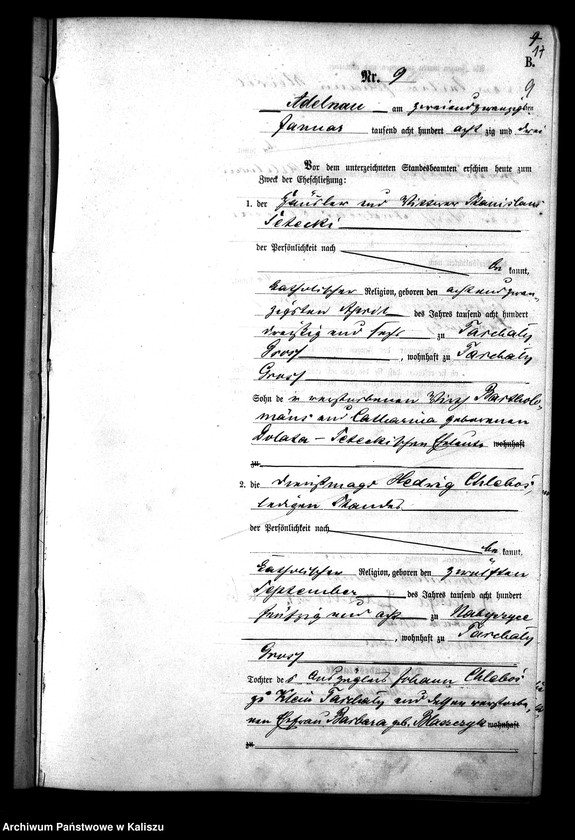 17
B.
Nr. 9
9
Adelnau am zweiundzwanzigsten
Januar tausend acht hundert achtzig und drei
Vor dem unterzeichneten Standesbeamten erschien heute zum
Zweck der Eheschließung:
1. der Häusler und Wittwer Stanislaus
Tetecki
der Persönlichkeit nach
be kannt,
katholischer Religion, geboren den achtundzwan-
zigsten April des Jahres tausend acht hundert
dreißig und sechs zu Tarchaly
Gross, wohnhaft zu Tarchaly
Gross
Sohn der verstorbenen Wirth Bartholo-
mäus und Catharina geborenen
Dolata - Teteckischen Eheleute wohnhaft
zu
2. die Dienstmagd Hedwig Chleboś,
ledigen Standes
der Persönlichkeit nach
be kannt,
katholischer Religion, geboren den zwölften
September des Jahres tausend acht hundert
fünfzig und acht zu
, wohnhaft zu Tarchaly
Gross
Tochter des Auszüglers Johann Chleboś
zu Klein Tarchaly und dessen verstorbe-
nen Ehefrau Barbara geb. Blaszczyk wohnhaft
zu
Archiwum Państwowe w Kaliszu